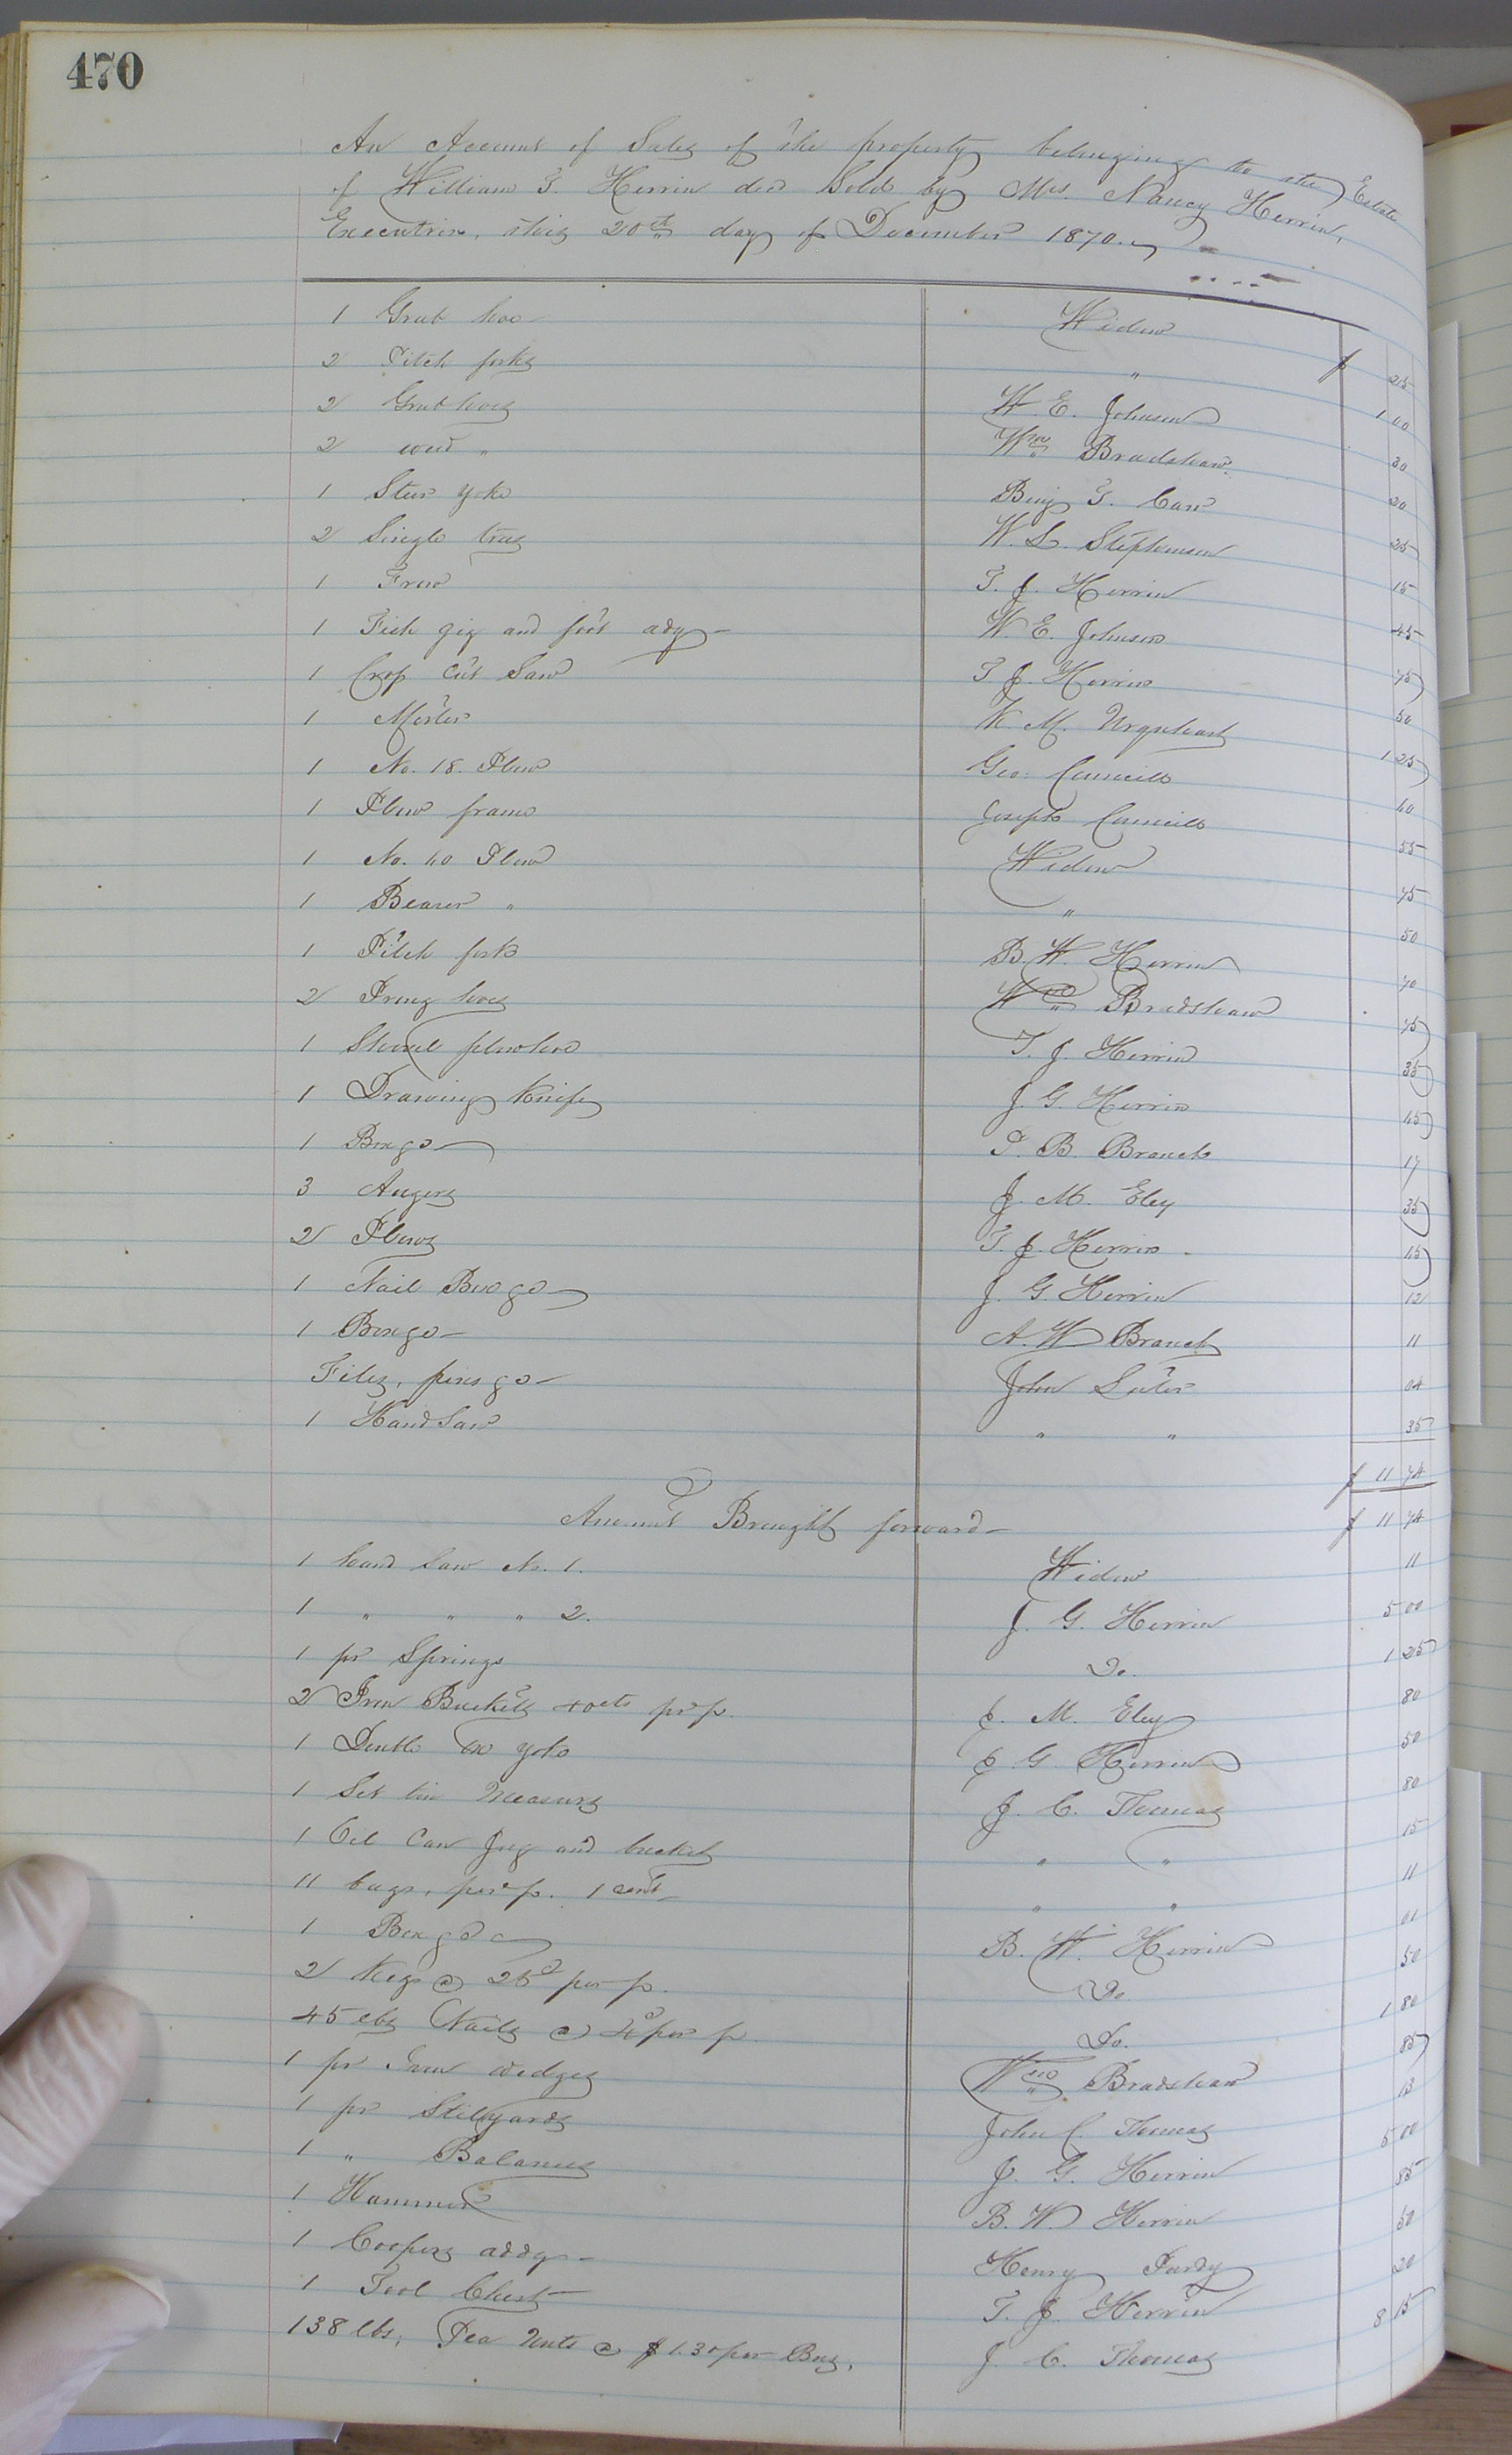 470
An Account of Sales of the property belonging to the Estate
of William T. Herrin decd Sold by Mrs. Nancy Herrin,
Executrix, this 20th day of December 1870.
1 Grub hoe Widow $ 25
2 Pitch forks " 1 00
2 Grub hoes W. E. Johnson 30
2 weed " Wm Bradshaw 20
1 Steer yoke Benj T. Carr 25
2 Single trees W. S. Stephenson 15
1 Frow T. J. Herrin 45
1 Fish gig and foot adze W. E. Johnson 75
1 Crop Cut Saw T. J. Herrin 50
1 K. M. Urquhart 1 25
1 No. 18. Plow Geo: Councill 60
1 Plow frame Joseph Councill 55
1 No. 60 Plow Widow 75
1 " " 50
1 Pitch fork B. W. Herrin 70
2 Prong hoes Wm Bradshaw 75
1 Shovel plow hoe T. J. Herrin 35
1 Drawing Knife J. G. Herrin 45
1 Box &c P. B. Branch 17
3 Augers J. M. Eley 35
2 Plows T. J. Herrin 45
1 Nail Box &c J. G. Herrin 12
1 Box &c A. W. Branch 11
Files, pins &c John Suter 04
1 Hand Saw " " 35
$ 11 74
Amount Brought forward $ 11 74
1 hand Saw No. 1. Widow 11
1 " " " 2. J. G. Herrin 5 00
1 pr Springs Do. 1 25
2 Iron Buckets 40cts pr p. J. M. Eley 80
1 Double ox yoke J. G. Herrin 50
1 Set tin Measures J. C. Thomas 80
1 Oil Can Jug and bucket " " 15
11 bags, per p. 1 cent " " 11
1 Box &c B. W. Herrin 01
2 Kegs @ 25c per p. Do 50
45 lbs Nails @ 4c per p. Do. 1 80
1 pr Iron wedges Wm Bradshaw 85
1 pr Stillyards John C. Thomas 13
1 " Balances J. G. Herrin 5 00
1 Hammer B. W. Herrin 85
1 Coopers addze Henry Purdy 50
1 Tool Chest T. J. Herrin 20
138 lbs, Pea Nuts @ $1.30 per Bus, J. C. Thomas 8 15